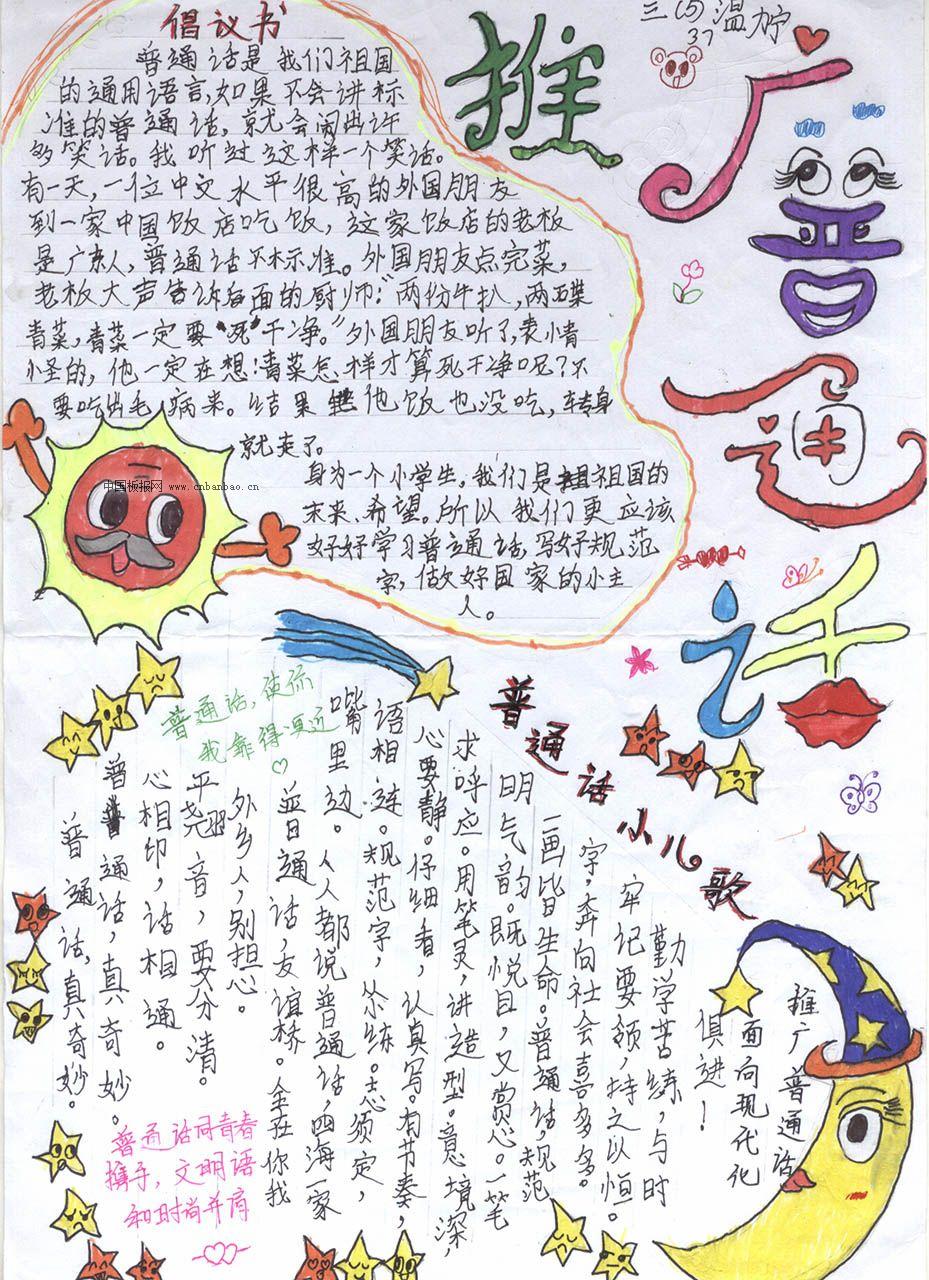 倡议书
普通话是我们祖国
的通用语言,如果不会讲标
准的普通话,就会闹出许
多笑话。我听过这样一个笑话。
有一天,一位中文水平很高的外国朋友
到一家中国饭店吃饭,这家饭店的老板
是广东人,普通话不标准。外国朋友点完菜,
老板大声告诉后面的厨师:"两份牛扒,两碟
青菜,青菜一定要"死"干净。"外国朋友听了,表情
怪怪的,他一定在想:青菜怎样才算死干净呢?不
要吃出毛病来。结果他饭也没吃,转身
就走了。
身为一个小学生,我们是祖国的
未来、希望。所以我们更应该
好好学习普通话,写好规范
字,做好国家的小主
人。
三(5)温柠
37
推广普通话
中国板报网 www.cnbanbao.cn
普通话,使你
我靠得更近
普通话小儿歌
普通话,真奇妙。
普通话,真奇妙。
心相印,话相通。
平翘音,要分清。
外乡人,别担心。
普通话,友谊桥。全在你我
嘴里边。人人都说普通话,四海一家
语相连。规范字,从小练。志须定,
心要静。仔细看,认真写。有节奏,
求呼应。用笔灵,讲造型。意境深,
明气韵。既悦目,又赏心。一笔
一画皆生命。普通话,规范
字,奔向社会喜多多。
牢记要领,持之以恒。
勤学苦练,与时
俱进!
推广普通话
面向现代化
普通话同青春
携手,文明语
和时尚并肩